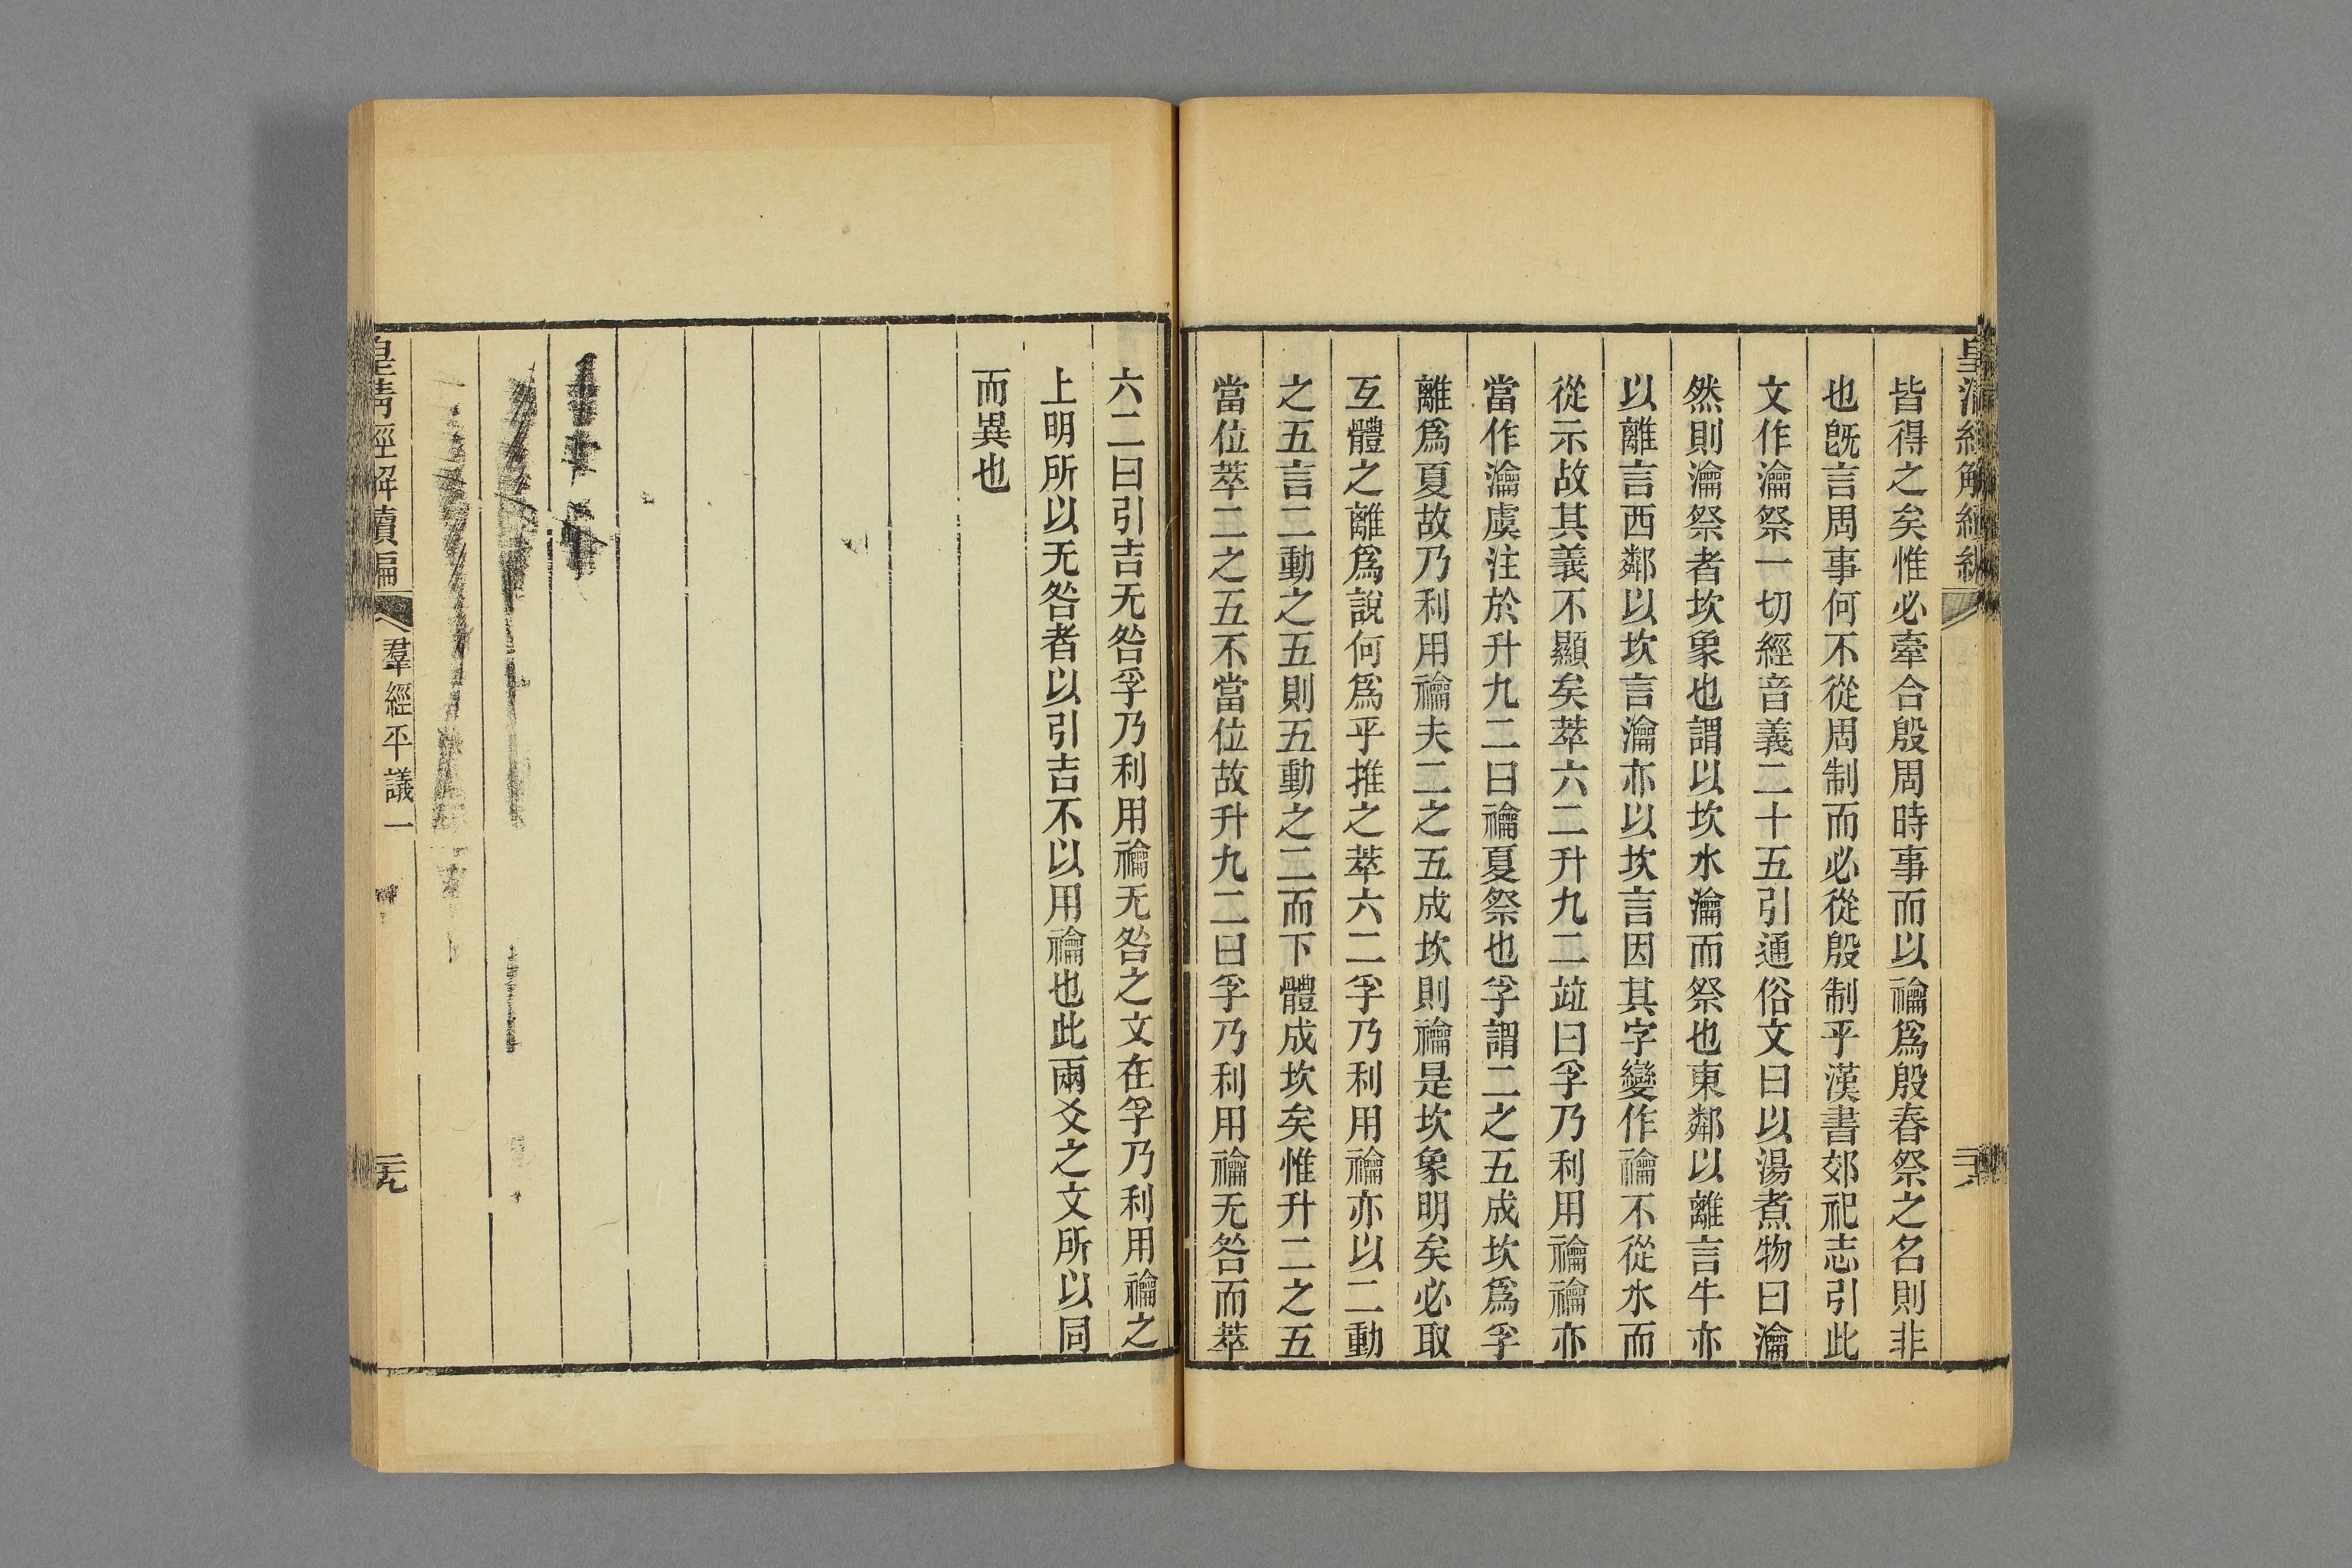 皇清經解續編
皆得之矣惟必牽合殷周時事而以禴爲殷春祭之名則非
也旣言周事何不從周制而必從殷制乎漢書郊祀志引此
文作瀹祭一切經音義二十五引通俗文曰以湯煮物曰瀹
然則瀹祭者坎象也謂以坎水瀹而祭也東鄰以離言牛亦
以離言西鄰以坎言瀹亦以坎言因其字變作禴不從水而
從示故其義不顯矣萃六二升九二竝曰孚乃利用禴禴亦
當作瀹虞注於升九二曰禴夏祭也孚謂二之五成坎爲孚
離爲夏故乃利用禴夫二之五成坎則禴是坎象明矣必取
互體之離爲說何爲乎推之萃六二孚乃利用禴亦以二動
之五言二動之五則五動之二而下體成坎矣惟升二之五
當位萃二之五不當位故升九二曰孚乃利用禴无咎而萃
六二曰引吉无咎孚乃利用禴无咎之文在孚乃利用禴之
上明所以无咎者以引吉不以用禴也此兩爻之文所以同
而異也
皇清經解續編
羣經平議一
二十九